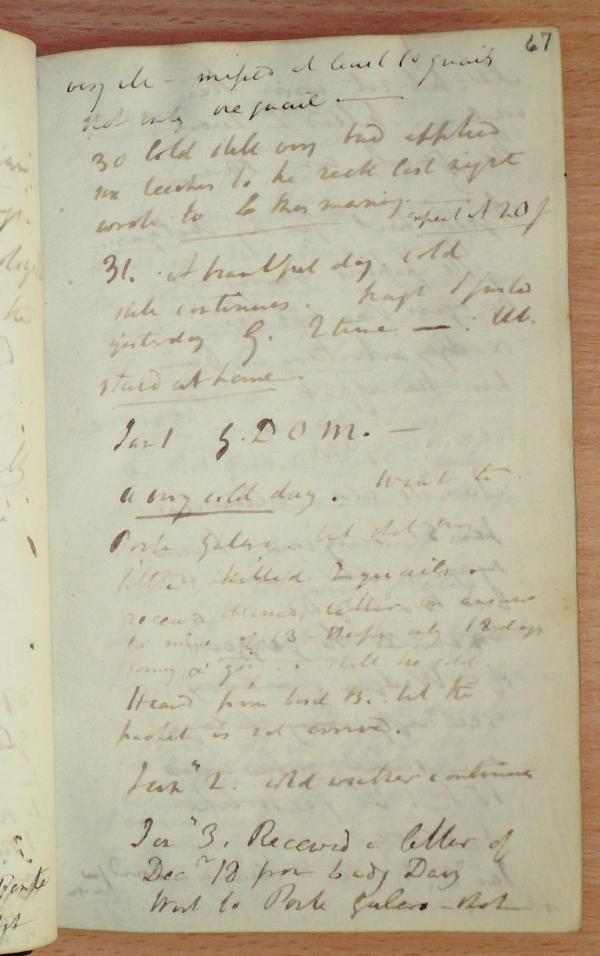 67
very ill – missed at least 10 quails
shot only one quail —
30 Cold still very bad applied
six leeches to the neck last night
wrote to this morning.
expect A 20
31. A beautiful day. cold
still continues.
yesterday G. 2 time — :
staid at home.
Jan 1 G. D O M. —
a very cold day. Went to
Ponte Galera. but shot very
little. killed 2 quails
received letter in answer
to mine of 13 – therefore only 18 days
coming & going. still the cold.
Heard from Lord B. but the
packet is not arrived.
Jany 2. cold weather continues
Jany 3. Received a letter of
Decr 18 from Lady Davy
Went to Ponte Galera – shot